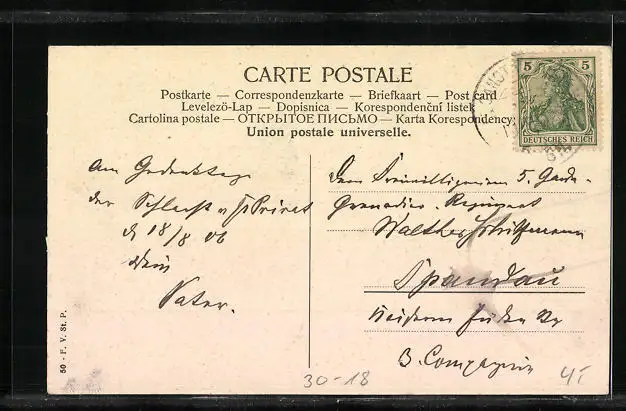 CARTE POSTALE
Postkarte — Correspondenzkarte — Briefkaart — Post card
Levelező-Lap — Dopisnica — Korespondenční listek
Cartolina postale — ОТКРЫТОЕ ПИСЬМО — Karta Korespondency
Union postale universelle.
5 5
DEUTSCHES REICH
Am Gedenktage
der Schlacht v. St Privat
d 18/8 06
Dein
Vater.
Den Freiwilligen 5. Garde
Grenadier-Regiment
Walther Schiffmann
Spandau
3. Compagnie
50 - F. V. St. P.
30-18
4,-